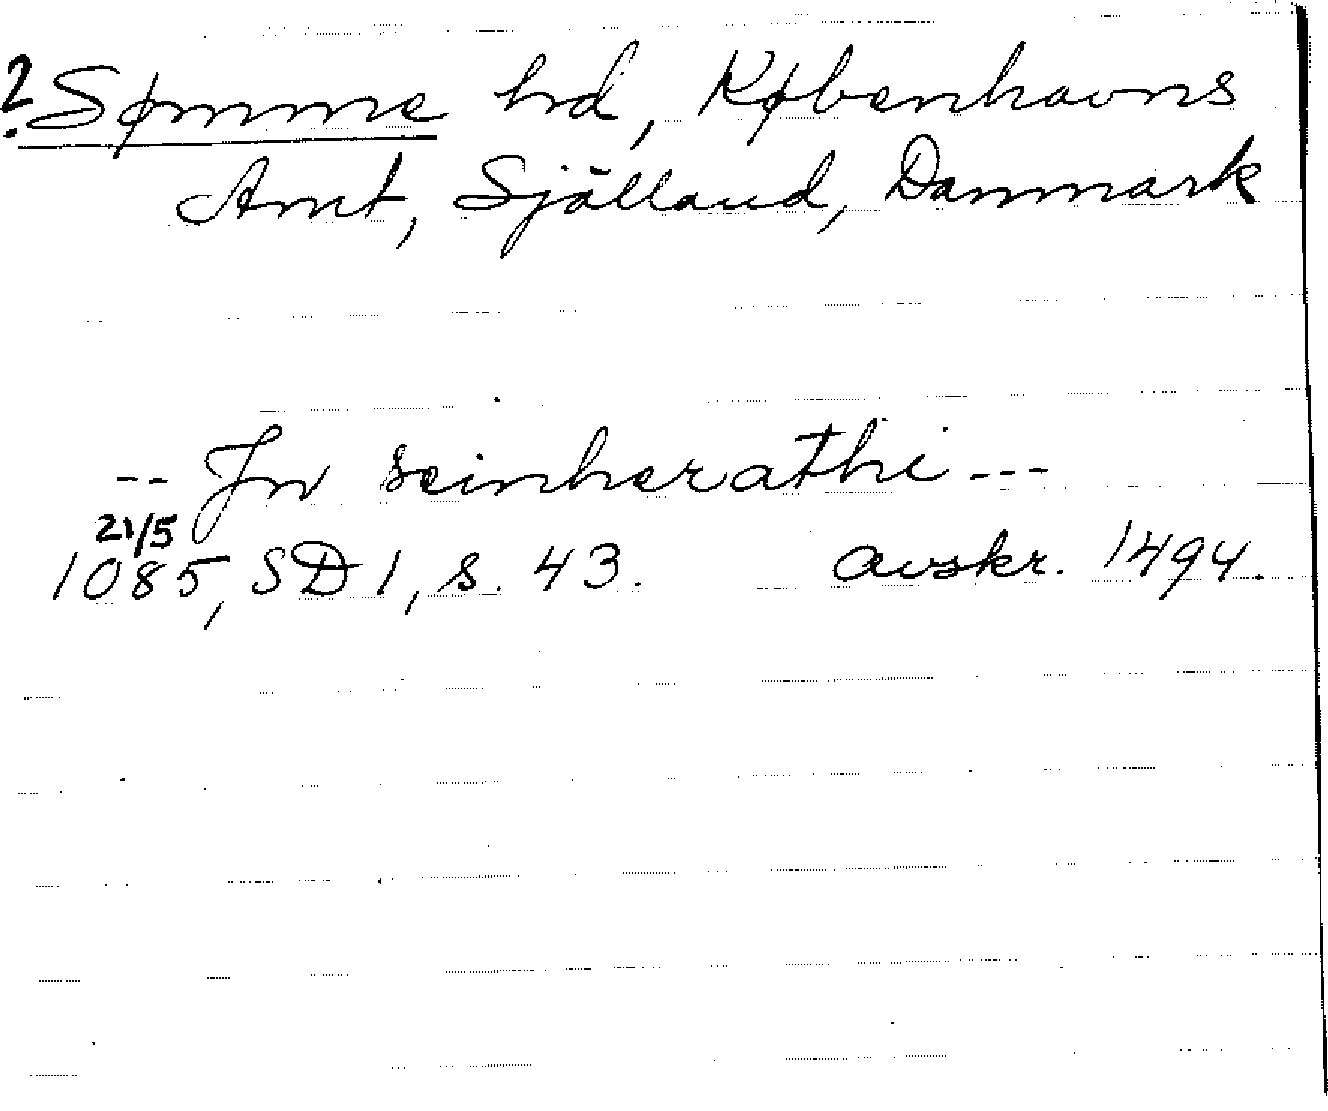 ? Sømme hd, Københavns
Amt, Själland, Danmark
-- Jn seinherathi ---
21/5
1085, SD 1, s. 43. avskr. 1494.